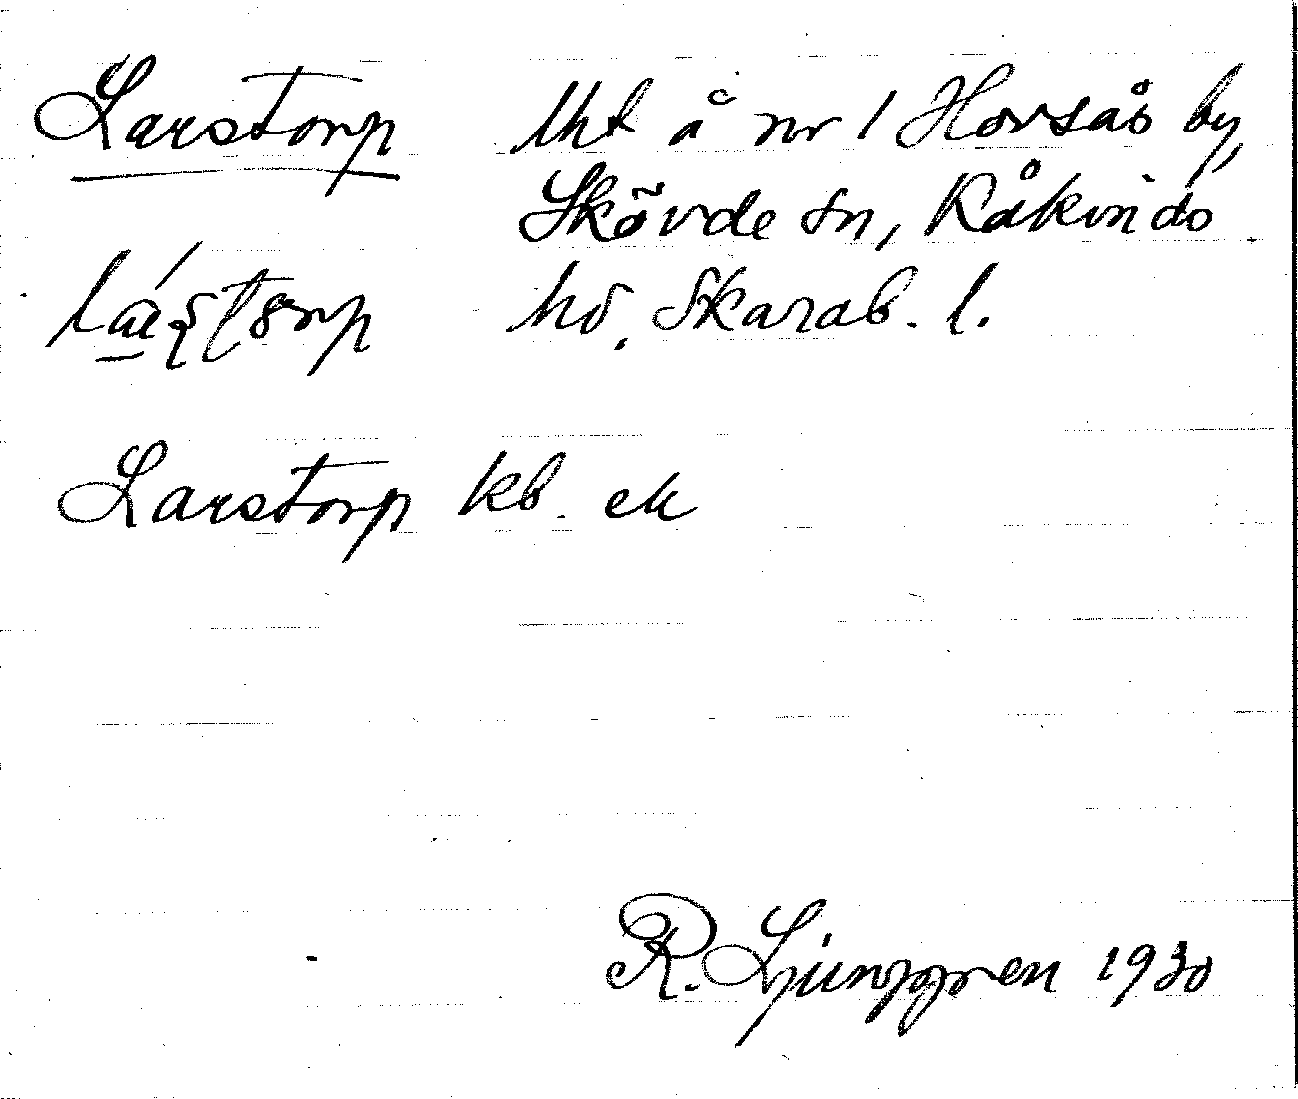 Larstorp lht å nr 1 Horsås by,
Skövde sn, Kåkinds
hd. Skarab. l.
Larstorp kb. ek
R. Ljunggren 1930